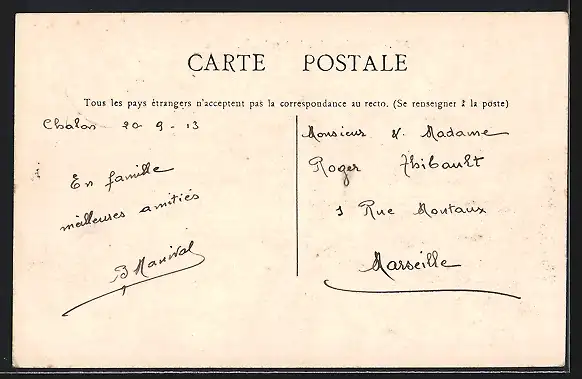 CARTE POSTALE
Tous les pays étrangers n'acceptent pas la correspondance au recto. (Se renseigner à la poste)
Chalon 20 - 9 - 13
En famille
meilleures amitiés
B Manival
Monsieur & Madame
Roger Thibault
1 Rue Montaux
Marseille